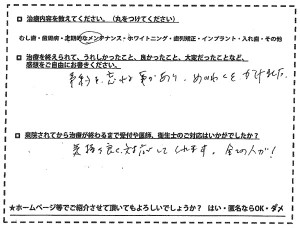 ■ 治療内容を教えてください。（丸をつけてください）
むし歯・歯周病・定期的なメンテナンス・ホワイトニング・歯列矯正・インプラント・入れ歯・その他
■ 治療を終えられて、うれしかったこと、良かったこと、大変だったことなど、
感想をご自由にお書きください。
予約を忘れる事があり、めいわくをかけました。
■ 来院されてから治療が終わるまで受付や医師、衛生士のご対応はいかがでしたか？
気持ち良く対応してくれます。全ての人が！
★ホームページ等でご紹介させて頂いてもよろしいでしょうか？ はい・匿名ならOK・ダメ